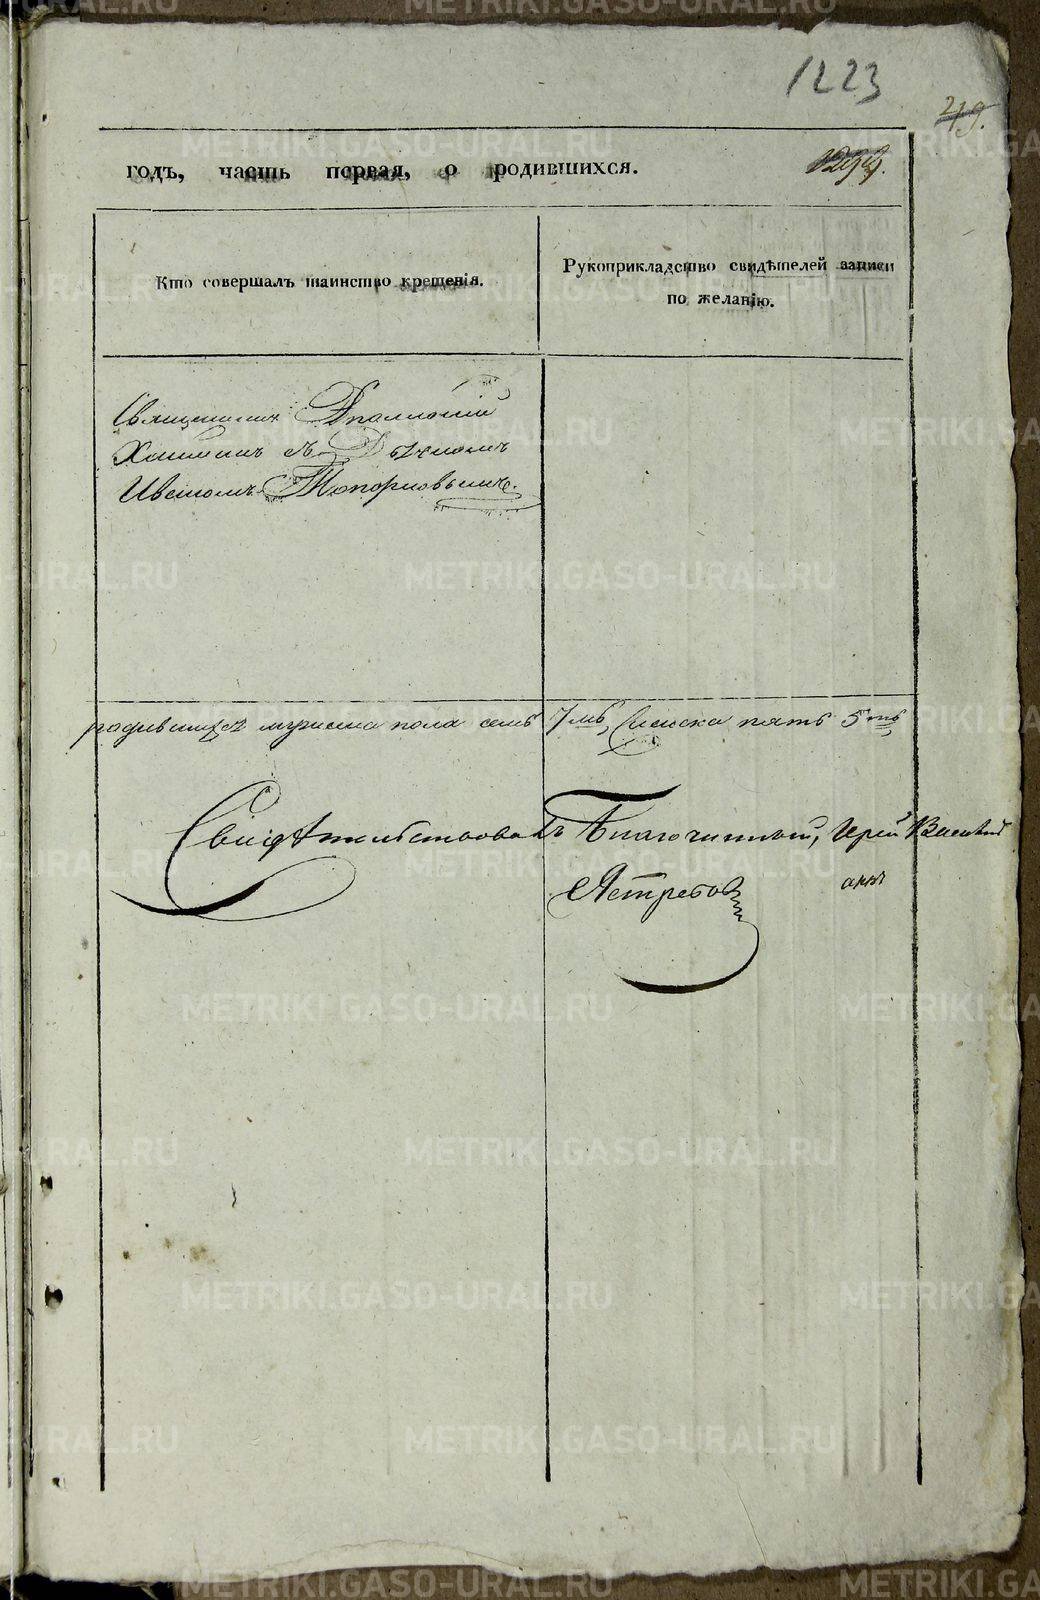 1223
419.
годъ, часть первая, о родившихся.
Кто совершалъ таинство крещенія.
Рукоприкладство свидѣтелей записи
по желанію.
Священникъ Аполлоній
съ Дьячкомъ
Иваномъ Топорковымъ.
родившихся мужеска пола семь 7мь, женска пять 5ть
Свидѣтельствовалъ Благочинный, Іерей Василій
Ястребовъ
METRIKI.GASO-URAL.RU